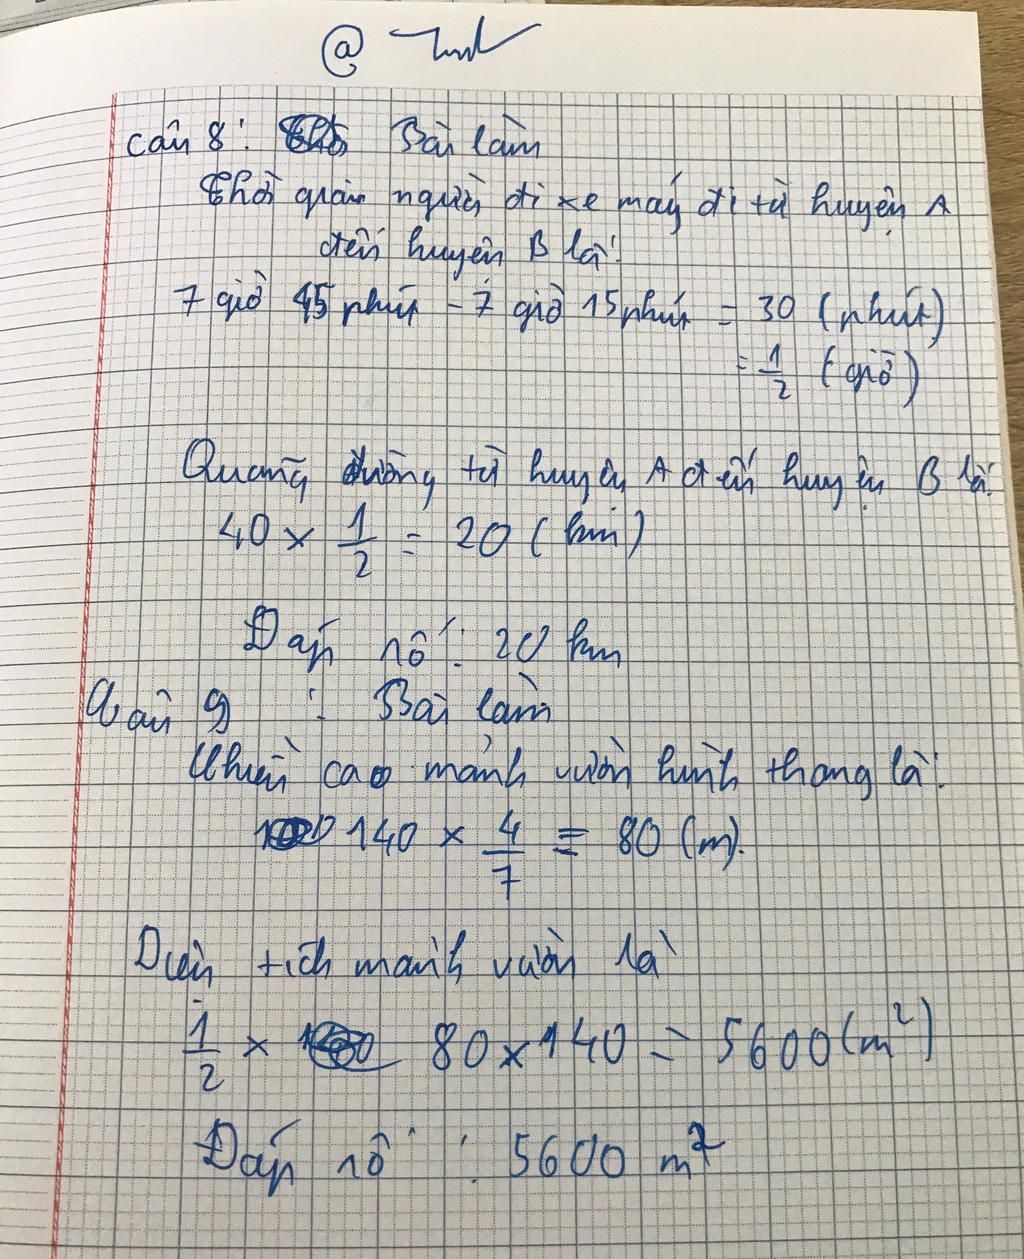 @
Câu 8: Bài làm
Thời gian người đi xe máy đi từ huyện A
đến huyện B là:
7 giờ 45 phút - 7 giờ 15 phút = 30 (phút)
= 1/2 (giờ)
Quãng đường từ huyện A đến huyện B là:
40 × 1/2 = 20 (km)
Đáp số: 20 km
Câu 9: Bài làm
Chiều cao mảnh vườn hình thang là:
140 × 4/7 = 80 (m).
Diện tích mảnh vườn là
1/2 × 80 × 140 = 5600 (m²)
Đáp số: 5600 m²